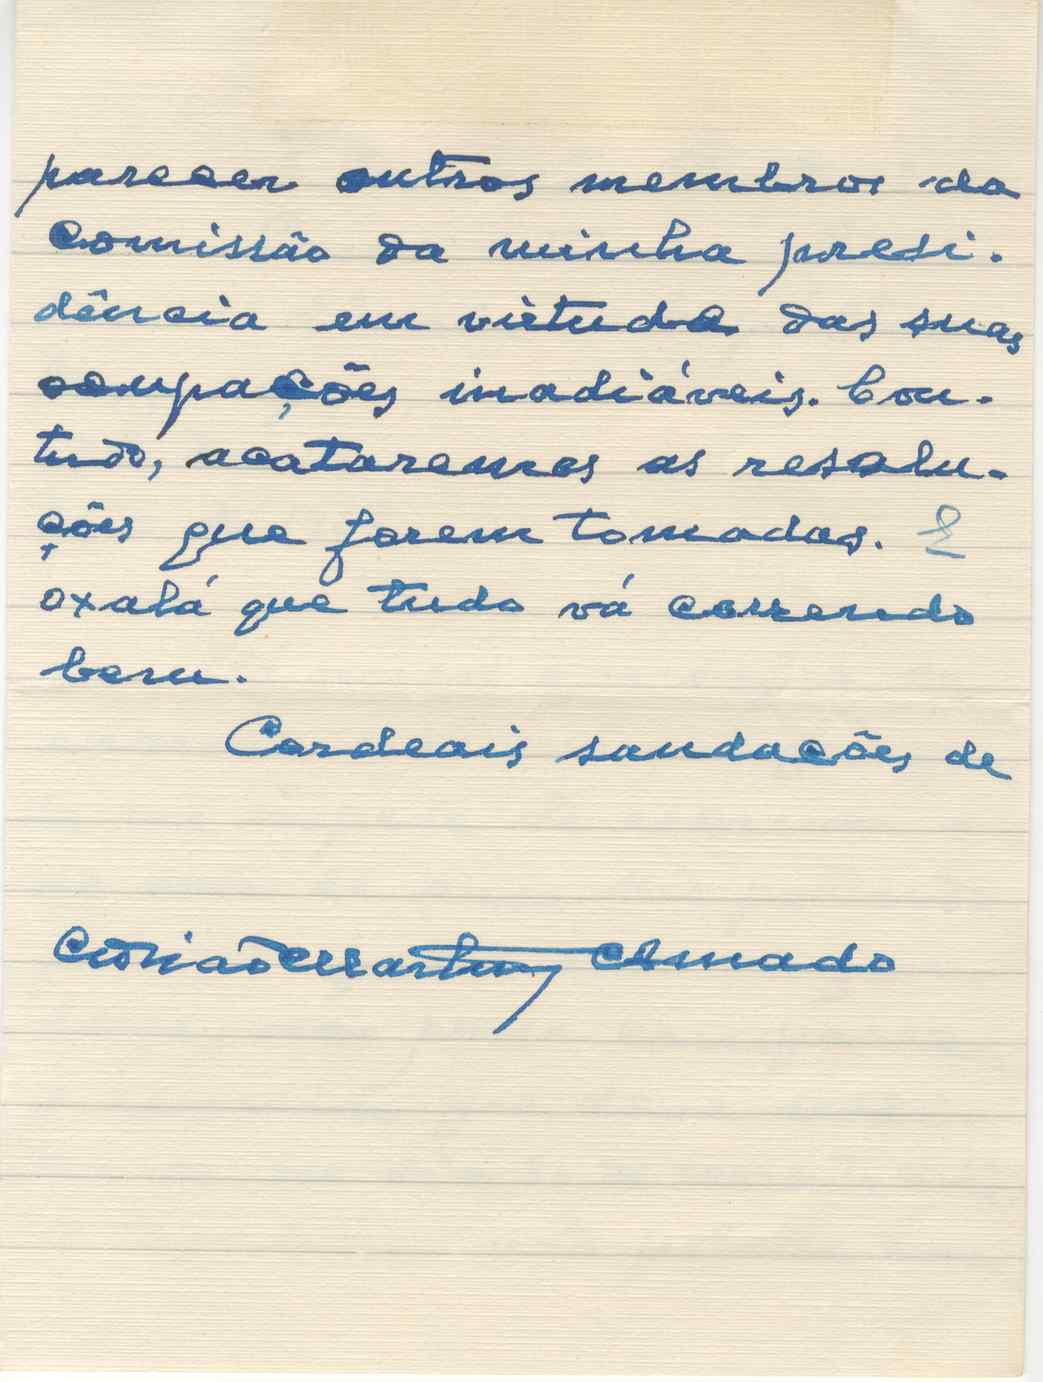 parecer outros membros da
Comissão da minha presi-
dência em virtude das suas
ocupações inadiáveis. Con-
tudo, acataremos as resolu-
ções que forem tomadas. E
oxalá que tudo vá correndo
bem.
Cordeais saudações de
Martins Almado